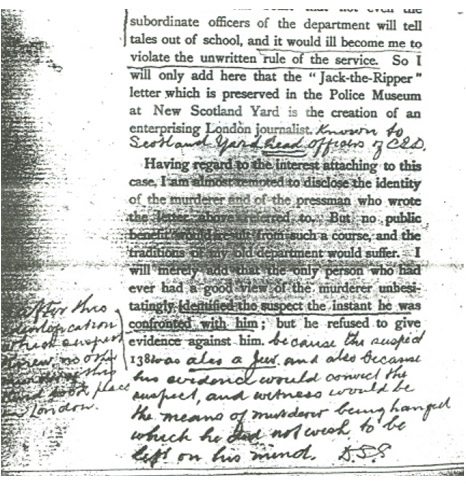 that not even the
subordinate officers of the department will tell
tales out of school, and it would ill become me to
violate the unwritten rule of the service. So I
will only add here that the "Jack-the-Ripper"
letter which is preserved in the Police Museum
at New Scotland Yard is the creation of an
enterprising London journalist. Known to
Scotland Yard head officers of C.I.D.
Having regard to the interest attaching to this
case, I am almost tempted to disclose the identity
of the murderer and of the pressman who wrote
the letter above referred to. But no public
benefit would result from such a course, and the
traditions of my old department would suffer. I
will merely add that the only person who had
ever had a good view of the murderer unhesi-
tatingly identified the suspect the instant he was
confronted with him; but he refused to give
evidence against him. because the suspect
138 was also a Jew and also because
his evidence would convict the
suspect, and witness would be
the means of murderer being hanged
which he did not wish to be
left on his mind. D.S.S
after this
identification
which suspect
knew, no other
murder of this
kind took place
in London.